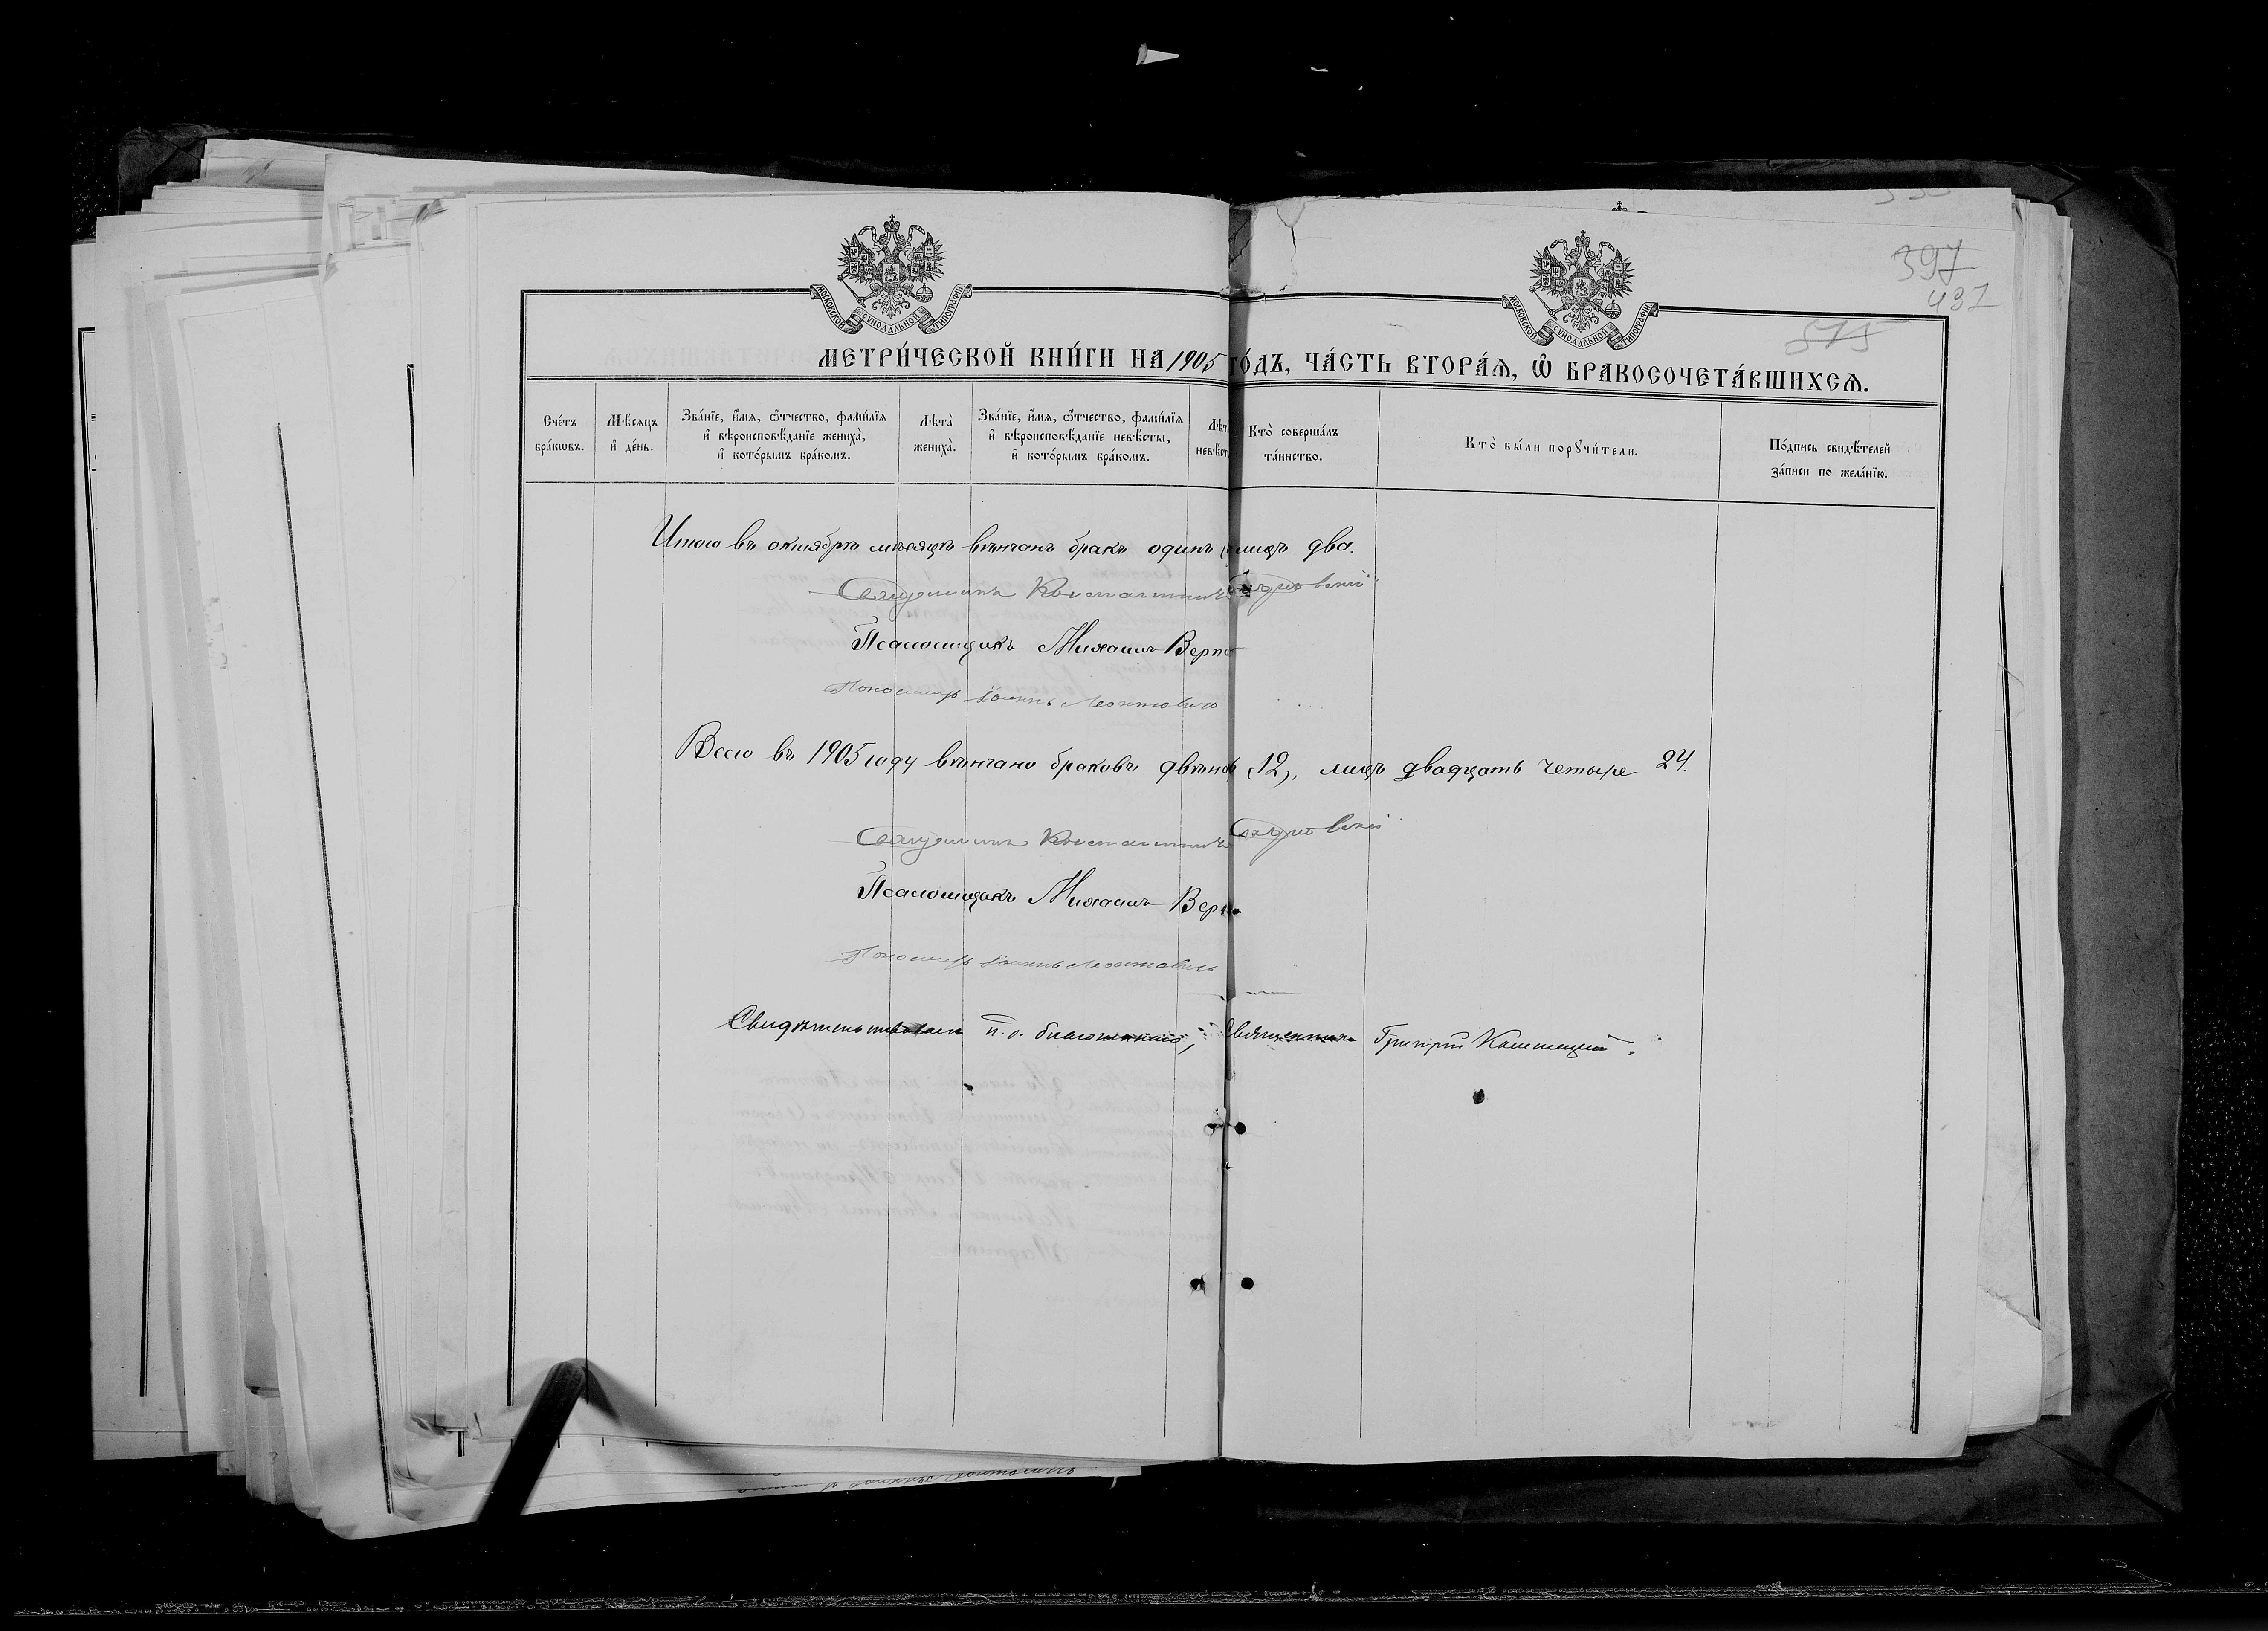 397
437
515
МОСКОВСКОЙ СѴНОДАЛЬНОЙ ТИПОГРАФІИ
МОСКОВСКОЙ СѴНОДАЛЬНОЙ ТИПОГРАФІИ
МЕТРИ́ЧЕСКОЙ КНИ́ГИ НА 1905 ГО́ДЪ, ЧА́СТЬ ВТОРА́Ѧ, Ѽ БРАКОСОЧЕТА́ВШИХСѦ.
Сче́тъ бра́кѡвъ.
Мѣ́сяцъ и҆ де́нь.
Зва́нїе, и҆́мя, ѻ҆́тчество, фами́лїя и҆ вѣроисповѣ́данїе жениха̀, и҆ кото́рымъ бра́комъ.
Лѣта̀ жениха̀.
Зва́нїе, и҆́мя, ѻ҆́тчество, фами́лїя и҆ вѣроисповѣ́данїе невѣ́сты, и҆ кото́рымъ бра́комъ.
Лѣт невѣст
Кто̀ соверша́лъ та́инство.
Кто̀ бы́ли порꙋчи́тели.
По́дпись свидѣ́телей за́писи по жела́нїю.
Итого въ октябрѣ мѣсяцѣ вѣнчанъ бракъ одинъ лицъ два.
Священникъ Константинъ
Псаломщикъ Михаилъ Верно
Пономарь Іоаннъ Леонтовичъ
Всего въ 1905 году вѣнчано браковъ двѣнад (12), лицъ двадцать четыре 24.
Священникъ Константинъ
Псаломщикъ Михаилъ Верно
Пономарь Іоаннъ Леонтовичъ
Свидѣтельствовалъ и. о. благочиннаго, Священникъ Григорій